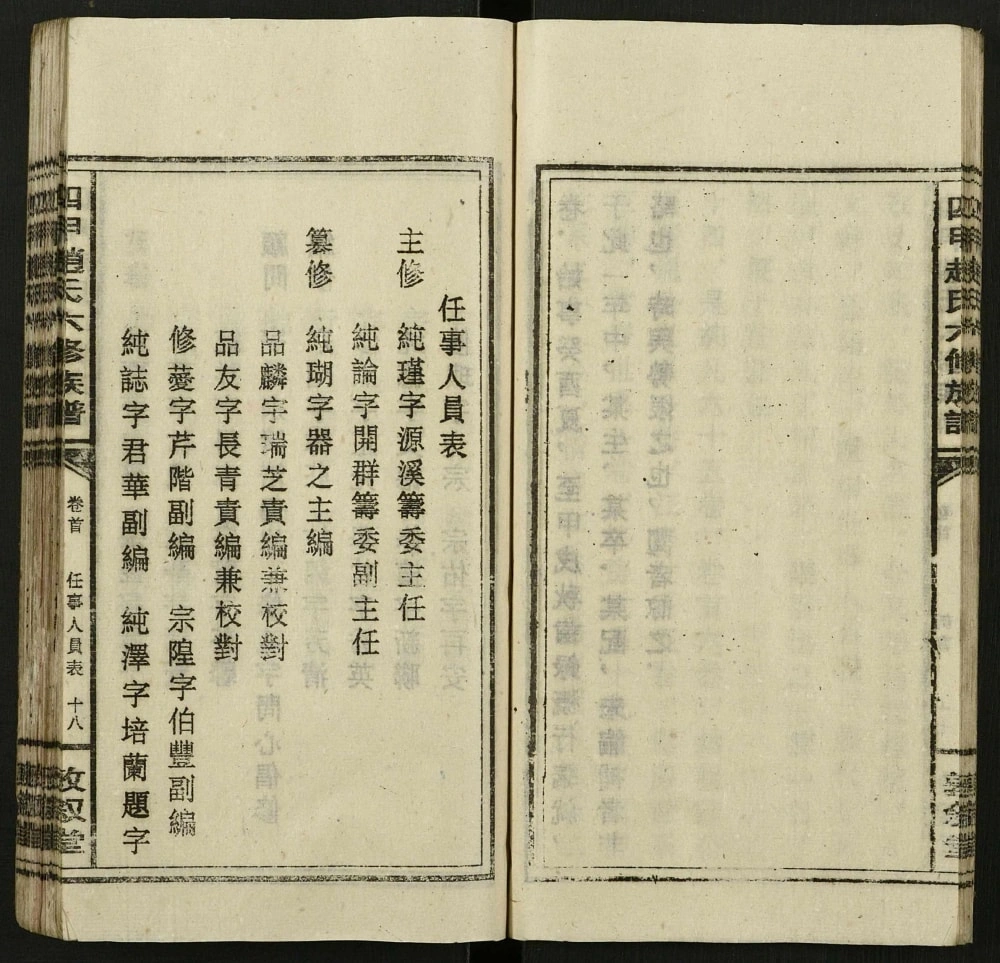 四甲趙氏六修族譜
任事人員表
主修 純瑾字源溪籌委主任
純論字開群籌委副主任
纂修 純瑚字器之主編
品麟字瑞芝責編兼校對
品友字長青責編兼校對
修薆字芹階副編 宗隍字伯豐副編
純誌字君華副編 純澤字培蘭題字
四甲趙氏六修族譜 卷首 任事人員表 十八 敘堂